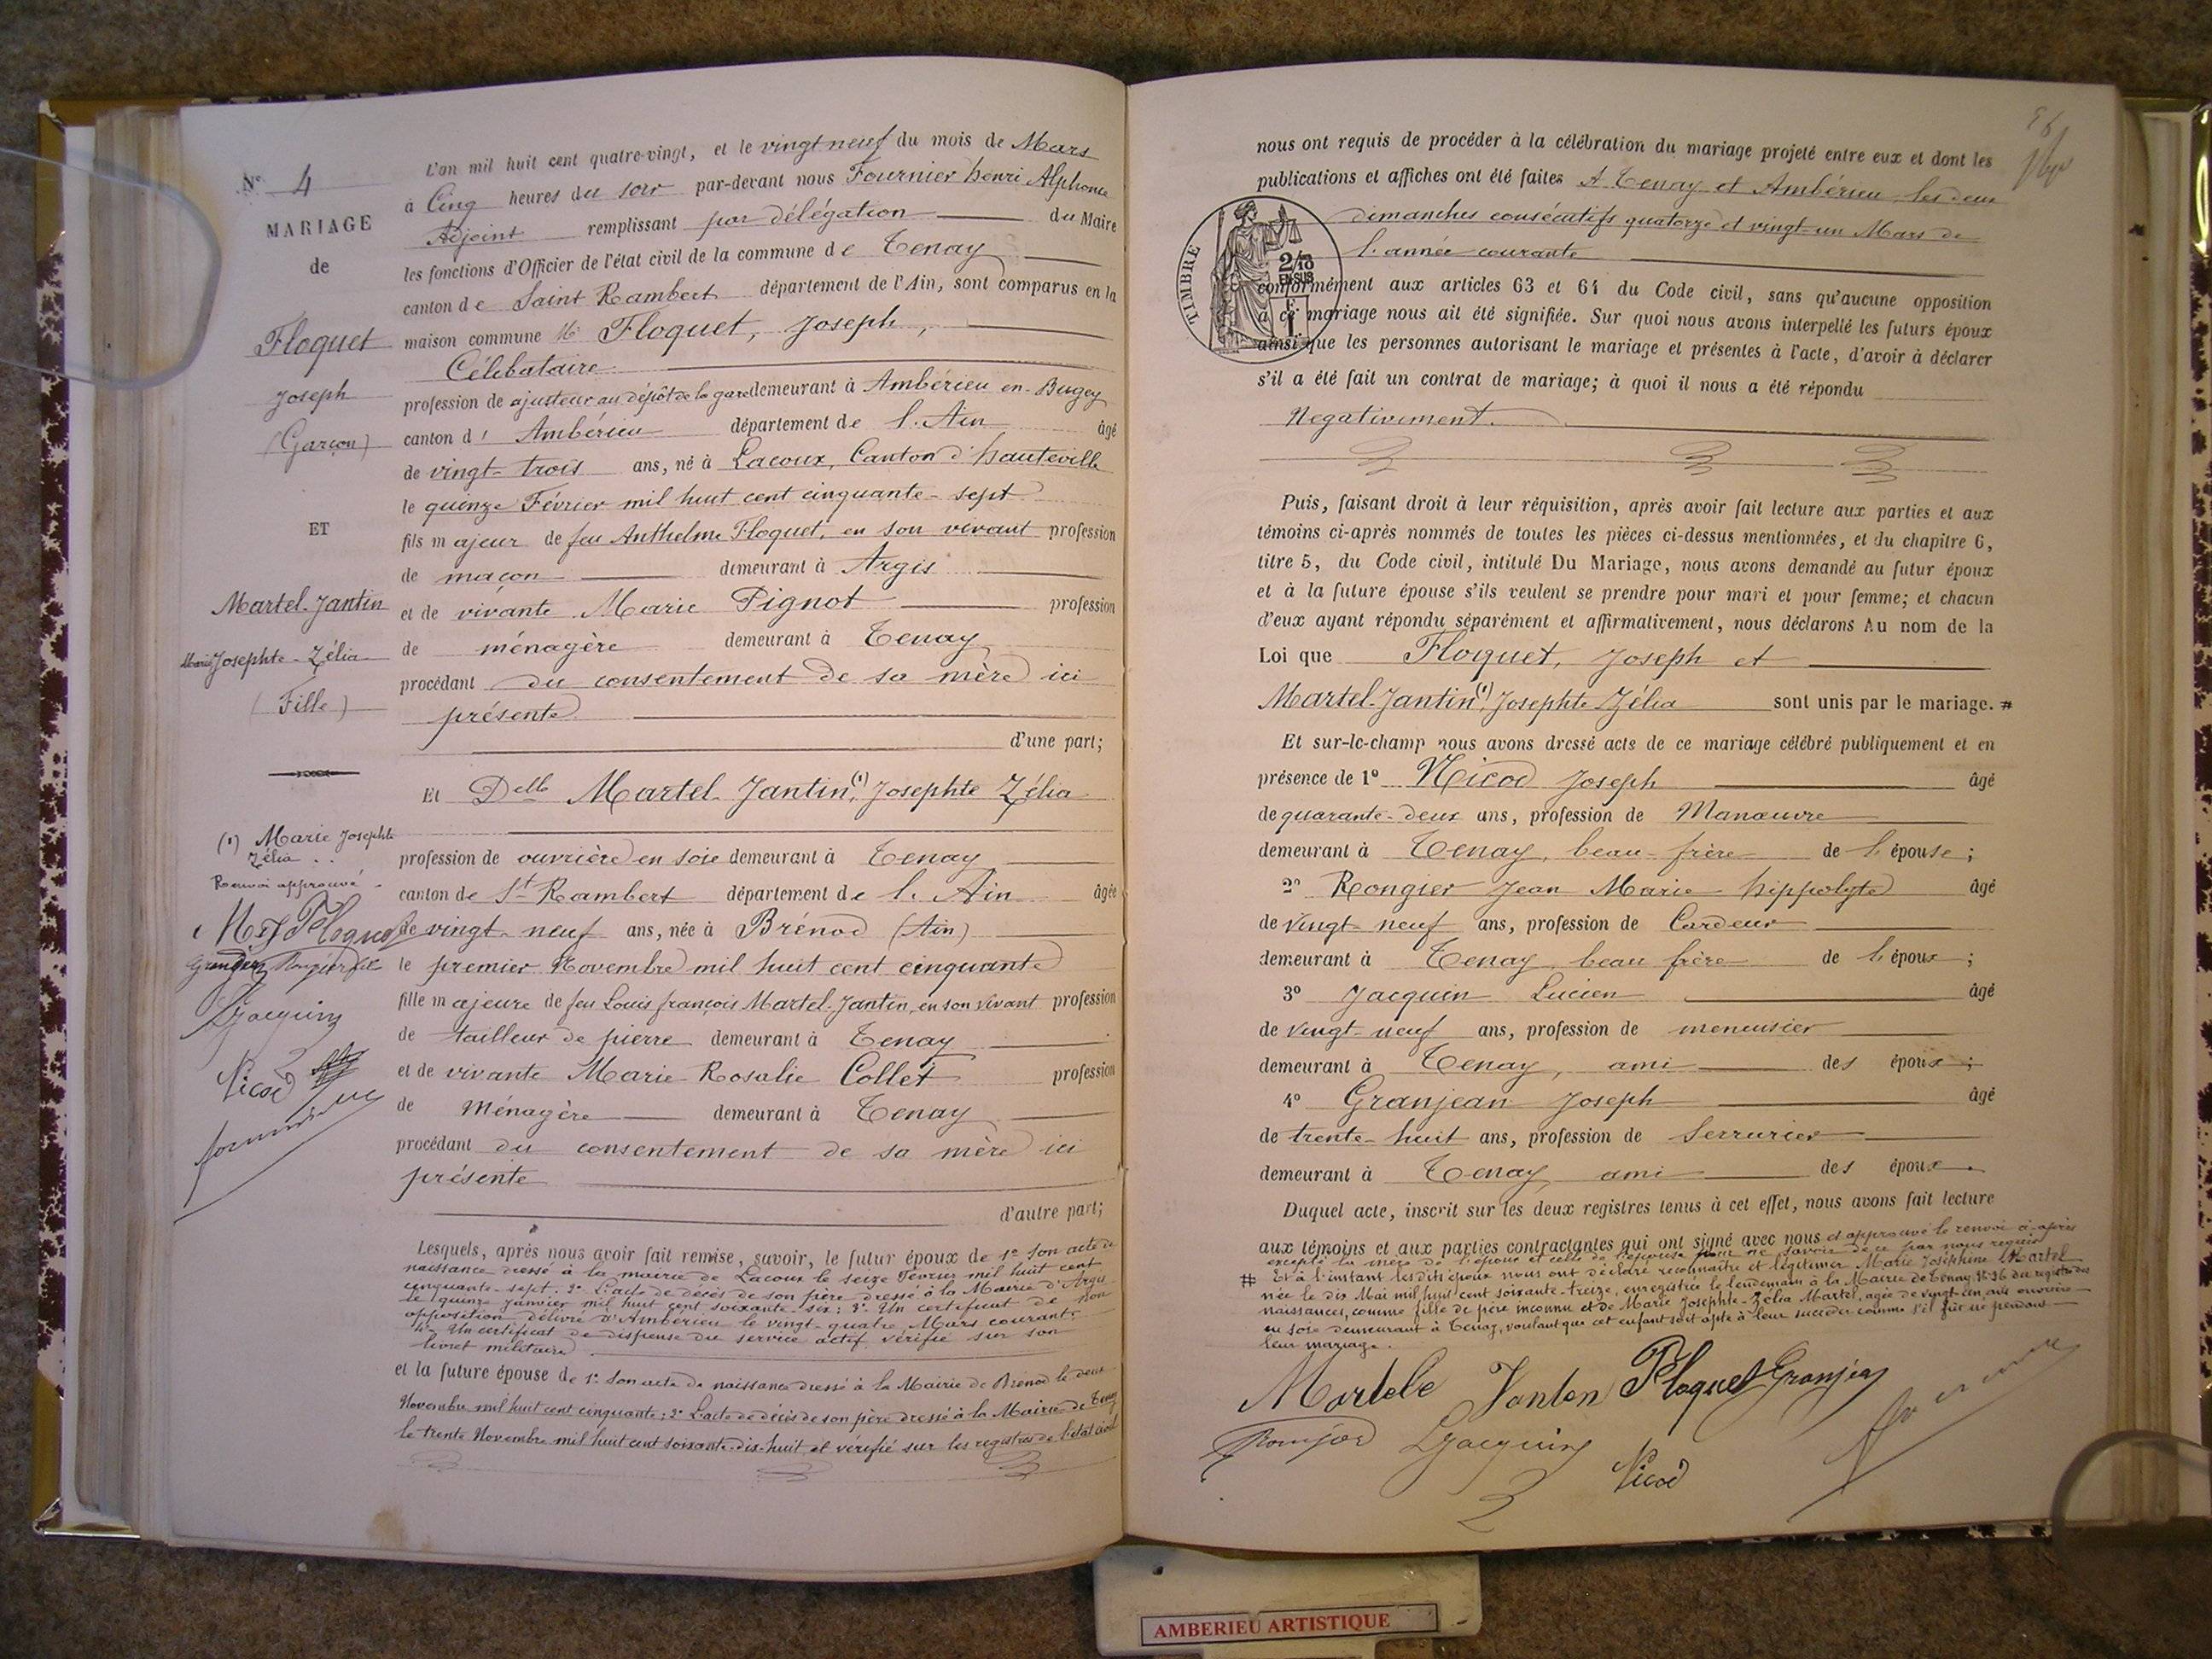 N° 4
MARIAGE
de
Floquet
Joseph
(Garçon)
ET
Martel-Jantin
Marie Josephte-Zélia
(Fille)
(1) Marie Josephte
Zélia
Renvoi approuvé
L'an mil huit cent quatre-vingt, et le vingt neuf du mois de Mars
à Cinq heures du soir par-devant nous Fournier henri Alphonse
Adjoint remplissant par délégation du Maire
les fonctions d'Officier de l'état civil de la commune de Tenay
canton de Saint Rambert département de l'Ain, sont comparus en la
maison commune Mr Floquet, Joseph,
Célibataire
profession de ajusteur au dépôt de la gare demeurant à Ambérieu en-Bugey
canton d' Ambérieu département de l'Ain âgé
de vingt-trois ans, né à Lacoux, Canton d'hauteville
le quinze Février mil huit cent cinquante-sept
fils majeur de feu Anthelme Floquet, en son vivant profession
de maçon demeurant à Argis
et de vivante Marie Pignot profession
de ménagère demeurant à Tenay
procédant du consentement de sa mère ici
présente
d'une part;
Et Delle Martel-Jantin,(1) Josephte Zélia
profession de ouvrière en soie demeurant à Tenay
canton de St Rambert département de l'Ain âgée
de vingt-neuf ans, née à Brénod (Ain)
le premier Novembre mil huit cent cinquante
fille majeure de feu Louis françois Martel-Jantin, en son vivant profession
de tailleur de pierre demeurant à Tenay
et de vivante Marie Rosalie Collet profession
de Ménagère demeurant à Tenay
procédant du consentement de sa mère ici
présente
d'autre part;
Lesquels, après nous avoir fait remise, savoir, le futur époux de 1° Son acte de
naissance dressé à la mairie de Lacoux le seize Février mil huit cent
cinquante-sept. 2° L'acte de décès de son père dressé à la Mairie d'Argis
le quinze Janvier mil huit cent soixante-six: 3° Un certificat de non
opposition délivré d'Ambérieu le vingt-quatre Mars courant.
4° Un certificat de dispense du service actif vérifié sur son
livret militaire.
et la future épouse de 1° Son acte de naissance dressé à la Mairie de Brénod le deux
Novembre mil huit cent cinquante: 2° L'acte de décès de son père dressé à la Mairie de Tenay
le trente Novembre mil huit cent soixante-dix-huit et vérifié sur les registres de l'état civil
nous ont requis de procéder à la célébration du mariage projeté entre eux et dont les
publications et affiches ont été faites A Tenay et Ambérieu les deux
dimanches consécutifs quatorze et vingt-un Mars de
l'année courante
TIMBRE
2/10
EN SUS
conformément aux articles 63 et 64 du Code civil, sans qu'aucune opposition
à ce mariage nous ait été signifiée. Sur quoi nous avons interpellé les futurs époux
ainsi que les personnes autorisant le mariage et présentes à l'acte, d'avoir à déclarer
s'il a été fait un contrat de mariage; à quoi il nous a été répondu
Negativement.
Puis, faisant droit à leur réquisition, après avoir fait lecture aux parties et aux
témoins ci-après nommés de toutes les pièces ci-dessus mentionnées, et du chapitre 6,
titre 5, du Code civil, intitulé Du Mariage, nous avons demandé au futur époux
et à la future épouse s'ils veulent se prendre pour mari et pour femme; et chacun
d'eux ayant répondu séparément et affirmativement, nous déclarons Au nom de la
Loi que Floquet, Joseph et
Martel-Jantin(1) Josephte Zélia sont unis par le mariage. #
Et sur-le-champ nous avons dressé acte de ce mariage célébré publiquement et en
présence de 1° Nicod Joseph âgé
de quarante-deux ans, profession de Manœuvre
demeurant à Tenay, beau-frère de l'épouse;
2° Rongier Jean Marie hippolyte âgé
de vingt-neuf ans, profession de Cardeur
demeurant à Tenay, beau frère de l'époux;
3° Jacquin Lucien âgé
de vingt-neuf ans, profession de menuisier
demeurant à Tenay, ami des époux;
4° Granjean Joseph âgé
de trente-huit ans, profession de Serrurier
demeurant à Tenay ami des époux.
Duquel acte, inscrit sur les deux registres tenus à cet effet, nous avons fait lecture
aux témoins et aux parties contractantes qui ont signé avec nous et approuvé le renvoi ci-après
excepté la mère de l'époux et celle de l'épouse pour ne savoir de ce par nous requis
# Et à l'instant lesdits époux nous ont déclaré reconnaître et légitimer Marie Joséphine Martel
née le dix Mai mil huit cent soixante-treize, enregistrée le lendemain à la Mairie de Tenay N° 26 du registre des
naissances, comme fille de père inconnu et de Marie Josephte-Zélia Martel, agée de vingt-un ans ouvrière
en soie demeurant à Tenay, voulant que cet enfant soit apte à leur succéder comme s'il fût né pendant
leur mariage.
Floquet Granjean
Ljacquin
Nicod
AMBERIEU ARTISTIQUE